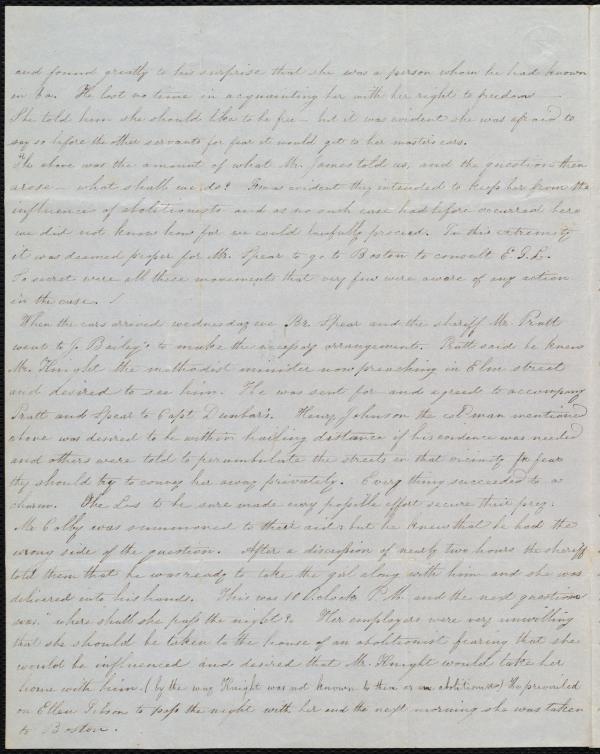 and found greatly to his surprise that she was a person whom he had known
in Va. He lost no time in acquainting her with her right to freedom —
She told him she should like to be free — but it was evident she was afraid to
say so before the other servants for fear it would get to her master's ears.
The above was the amount of what Mr. James told us, and the question then
arose — what shall we do? It was evident they intended to keep her from the
influences of abolitionists and as no such case had before occurred here
we did not know how far we could lawfully proceed. In this extremity
it was deemed proper for Mr. Spear to go to Boston to consult E. G. L.
So secret were all these movements that very few were aware of any action
in the case. /
When the cars arrived wednesday eve Br. Spear and the sheriff Mr Pratt
went to J. Bailey's to make the necessary arrangement. Pratt said he knew
Mr. Knight the methodist minister now preaching in Elm street
and desired to see him. He was sent for and agreed to accompany
Pratt and Spear to Capt Dunbar's. Henry Johnson the cold man mentioned
above was desired to be within hailing distance if his evidence was needed
and others were told to perambulate the streets in that vicinity for fear
they should try to convey her away privately. Every thing succeeded to a
charm. The to be sure made every possible effort secure their prey.
Mr Colby was summoned to their aid, but he knew that he had the
wrong side of the question. After a discussion of nearly two hours the sheriff
told them that he was ready to take the girl along with him and she was
delivered into his hands. This was 10 O'clock P.M. and the next question
was "where shall she pass the night?" Her employers were very unwilling
that she should be taken to the house of an abolitionist fearing that she
would be influenced and desired that Mr. Knight would take her
home with him. (by the way Knight was not known to them as an abolitionist) He prevailed
on Ellen Gibson to pass the night with her and the next morning she was taken
to Boston.